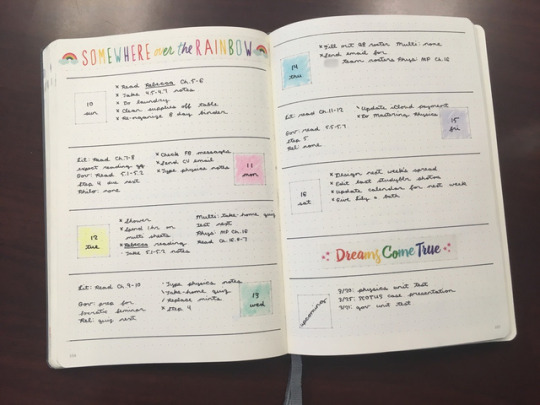 SOMEWHERE over the RAINBOW
10
sun
* Read Rebecca Ch. 5-6
* Take 4.5-4.7 notes
* Do laundry
* Clear supplies off table
* Re-organize 8 day binder
Lit: Read Ch. 7-8
Gov: Read 5.1-5.2
Step 4 due next
Philo: none
* Check FB messages
* Send CV email
* Type physics notes
11
mon
12
tue
* Shower
multi sheets
* Rebecca reading
Take 5.1-5.2 notes
Multi: take home quiz
test next
Phys: MP Ch. 18
Read Ch. 18.6-7
Lit: Read Ch. 9-10
Gov: prep for
Socratic Seminar
Rel: quiz next
Type physics notes
Take-home quiz
Replace mints
* Step 4
13
wed
14
thu
* Fill out roster
Multi: none
* Send email for
team rosters
Phys: MP Ch. 18
Lit: read Ch. 11-12
Gov: read 5.5-5.7
Step 5
Rel: none
* Update iCloud payment
* Do Mastering Physics
15
fri
16
sat
* Design next week's spread
* Edit last studyblr photos
* Update calendar for next week
* Give a bath
Dreams Come True
upcoming
3/20: physics unit test
3/25: SCOTUS case presentation
gov unit test